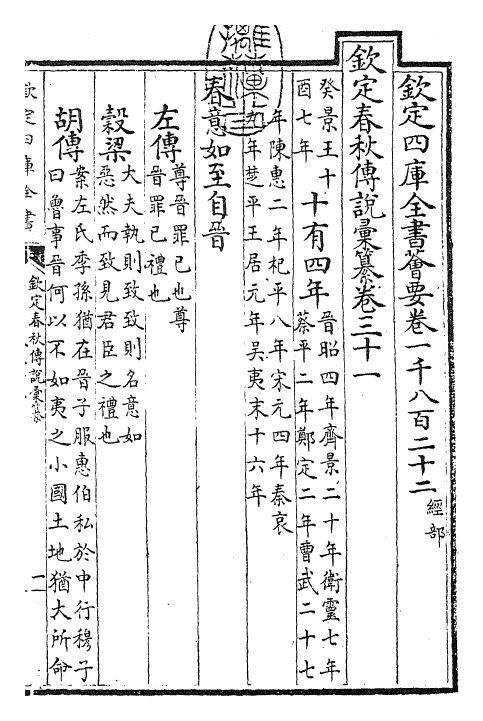 欽定四庫全書薈要卷一千八百二十二 經部
欽定春秋傳說彙纂卷三十一
癸景王十
酉七年
十有四年
晉昭四年齊景二十年衛靈七年
蔡平二年鄭定二年曹武二十七
年陳惠二年杞平八年宋元四年秦哀
九年楚平王居元年吳夷末十六年
春意如至自晉
左傳
尊晉罪已也尊
晉罪已禮也
穀梁
大夫執則致致則名意如
惡然而致見君臣之禮也
胡傳
案左氏季孫猶在晉子服惠伯私於中行穆子
曰魯事晉何以不如夷之小國土地猶大所命
欽定四庫全書
欽定春秋傳說彙纂